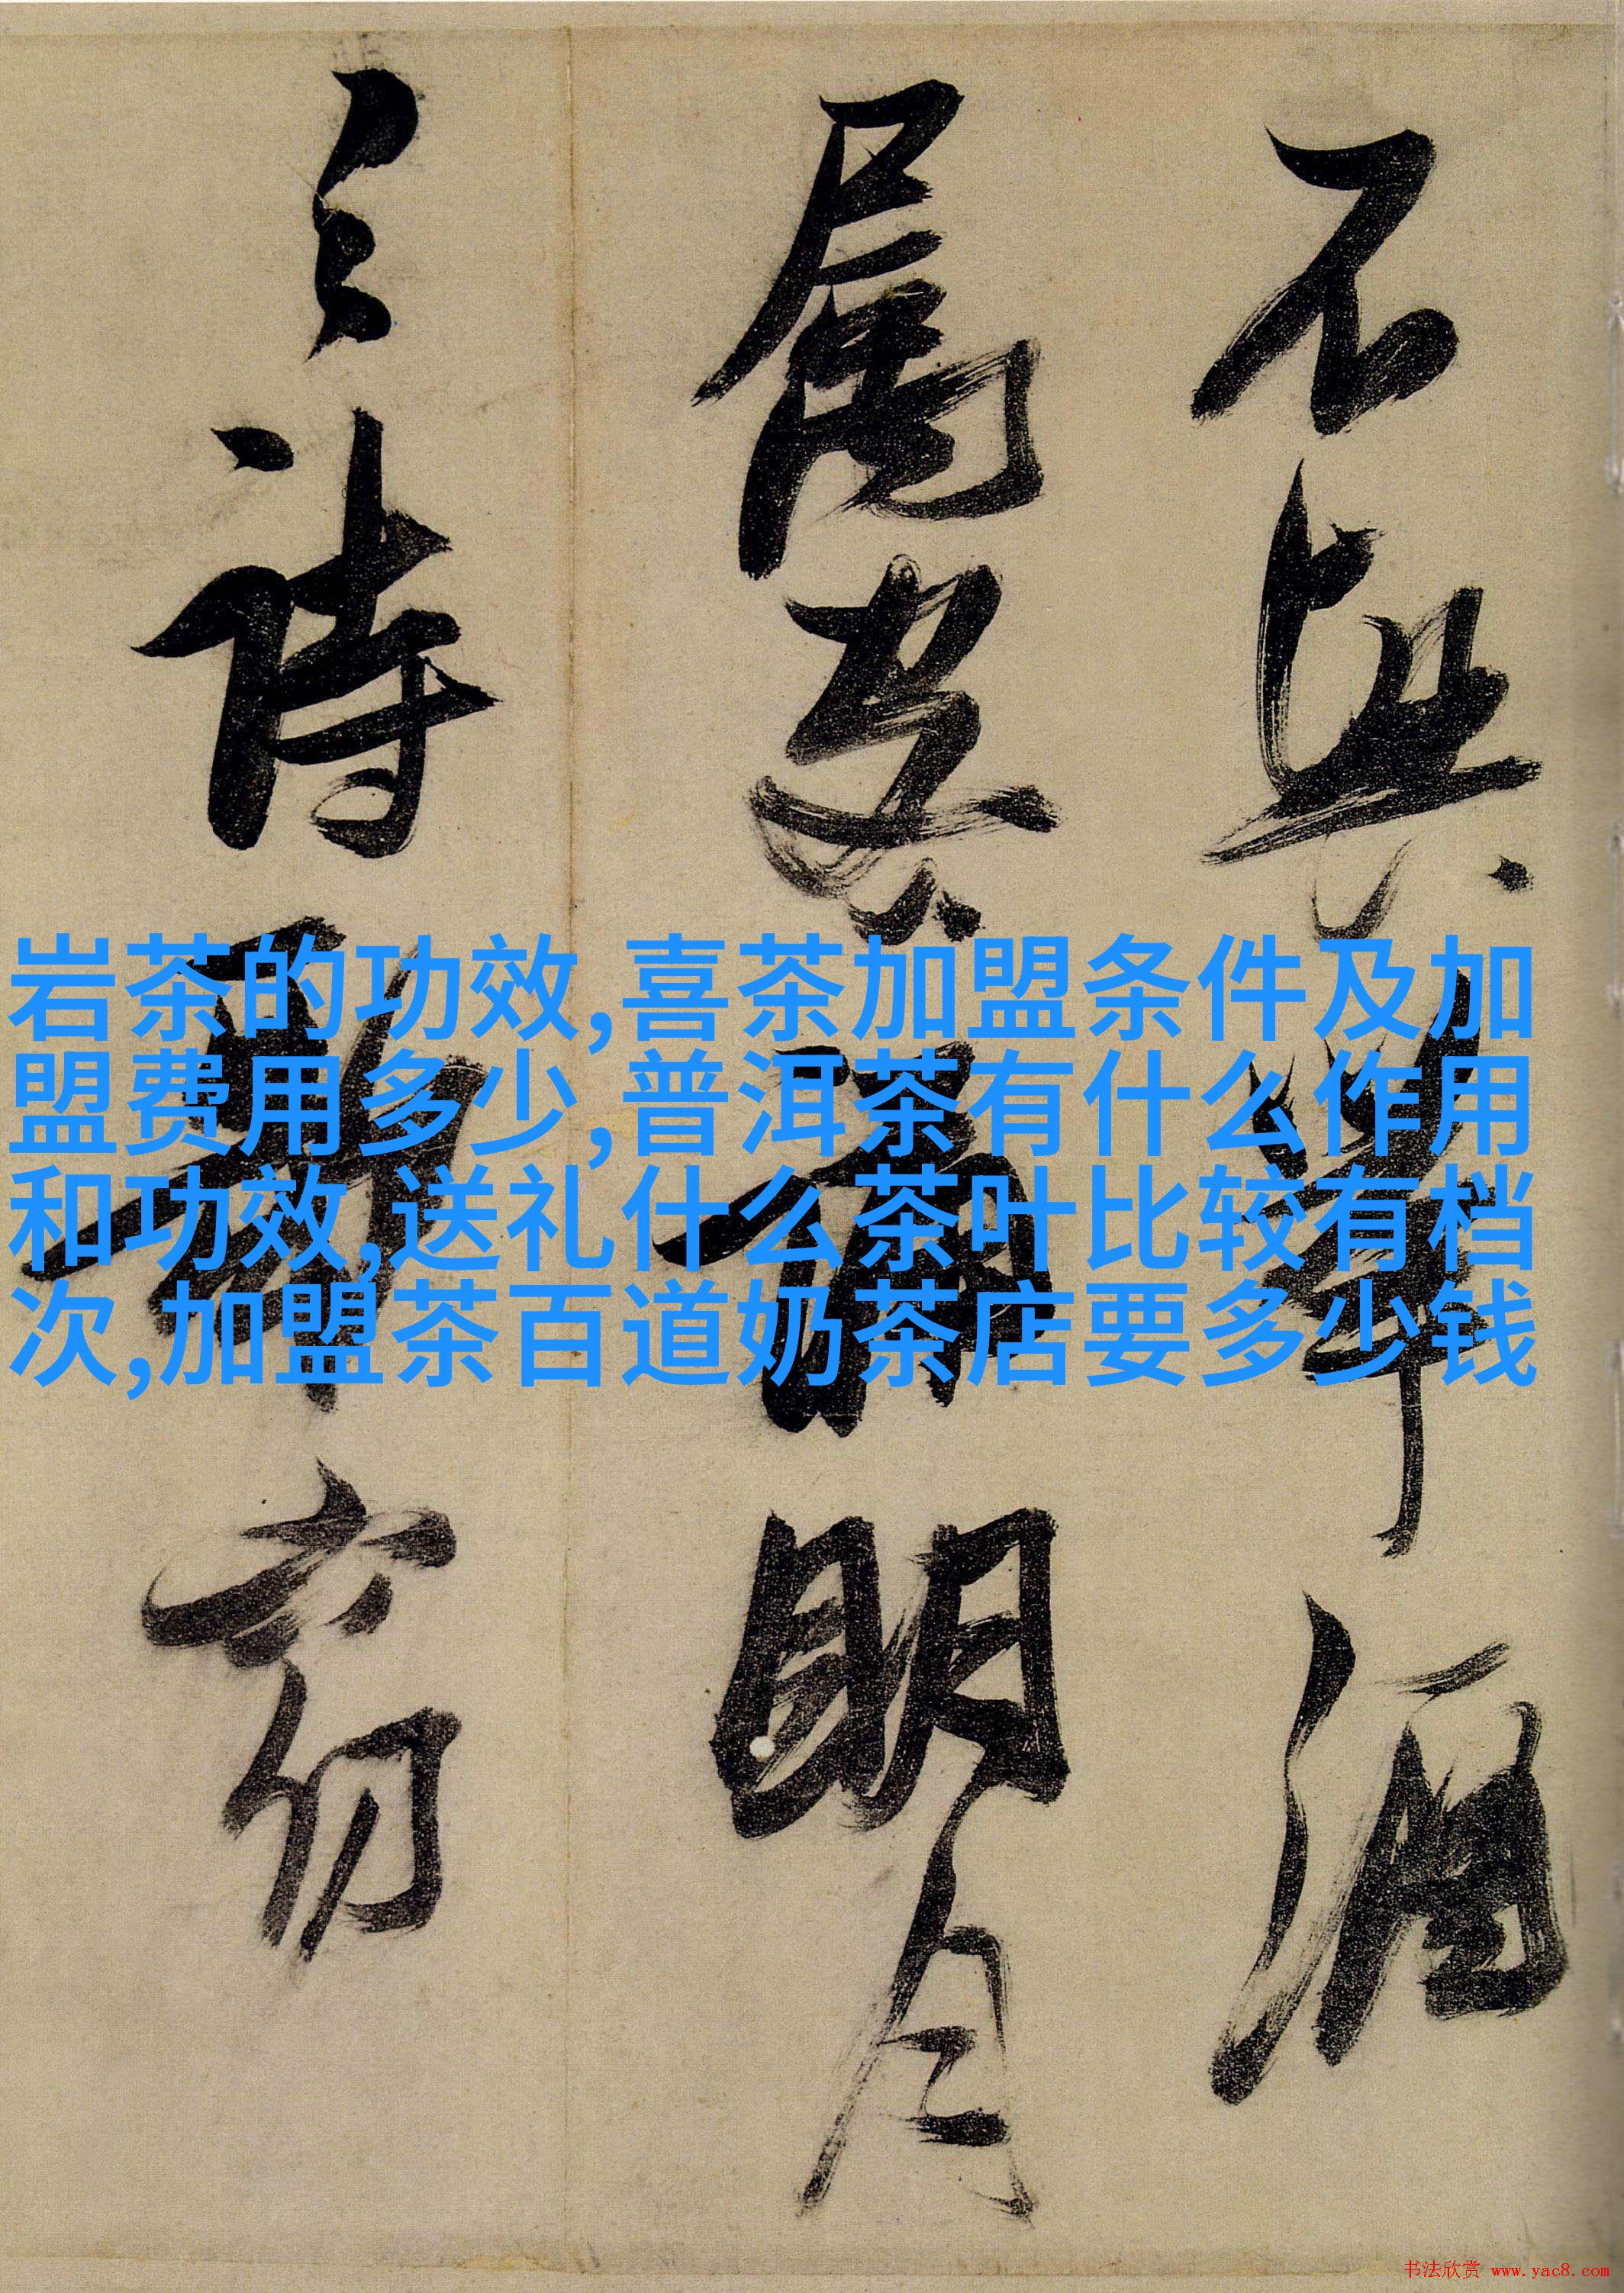 不興舉酒
屬客誦明月
之詩歌窈
岩茶的功效,喜茶加盟条件及加
盟费用多少,普洱茶有什么作用
和功效,送礼什么茶叶比较有档
次,加盟茶百道奶茶店要多少钱
书法欣赏 www.yac8.com